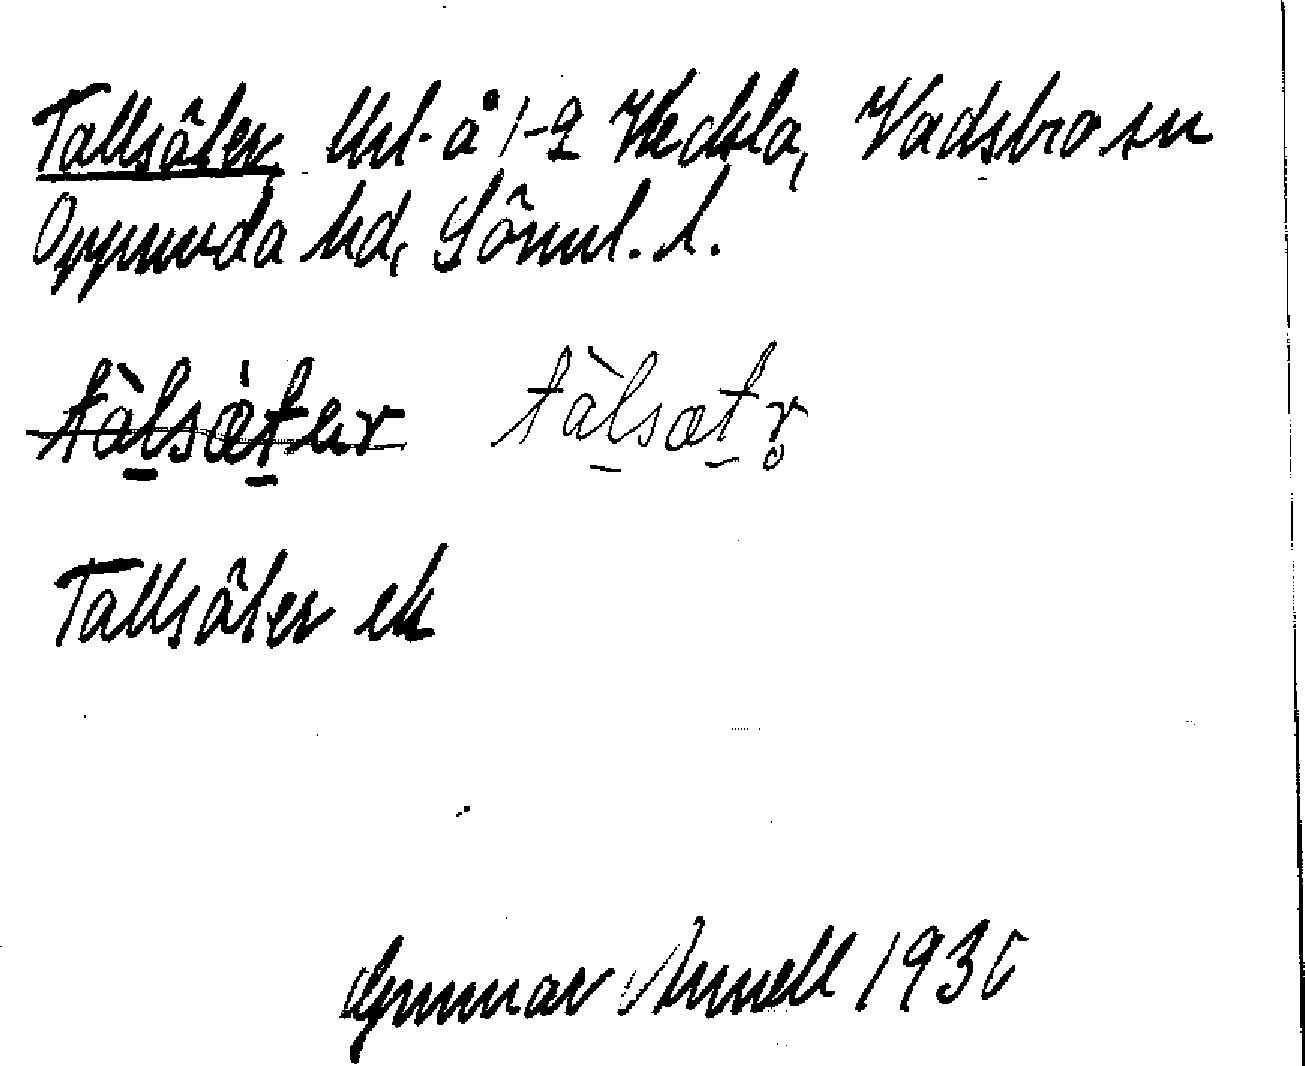 Tallsäter, Utl. å 1-2 Väckla, Vadsbro sn
Oppunda hd, Sörml. l.
tàlsæter tàlsætr̥
Tallsäter ek
Gunnar Arnell 1936